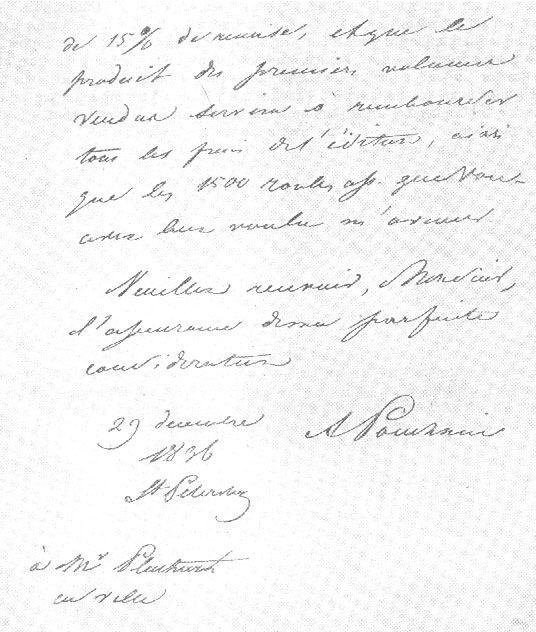 de 15% de remise, et que le
produit des premiers volumes
vendus servira à rembourser
tous les frais de l'éditeur, ainsi
que les 1500 roubles ass. que vous
avez bien voulu m'avancer
Veuillez recevoir, Monsieur,
l'assurance de ma parfaite
considération
29 decembre
1836
St Petersbg
A Pouchkin
à Mr Pluchart
en ville